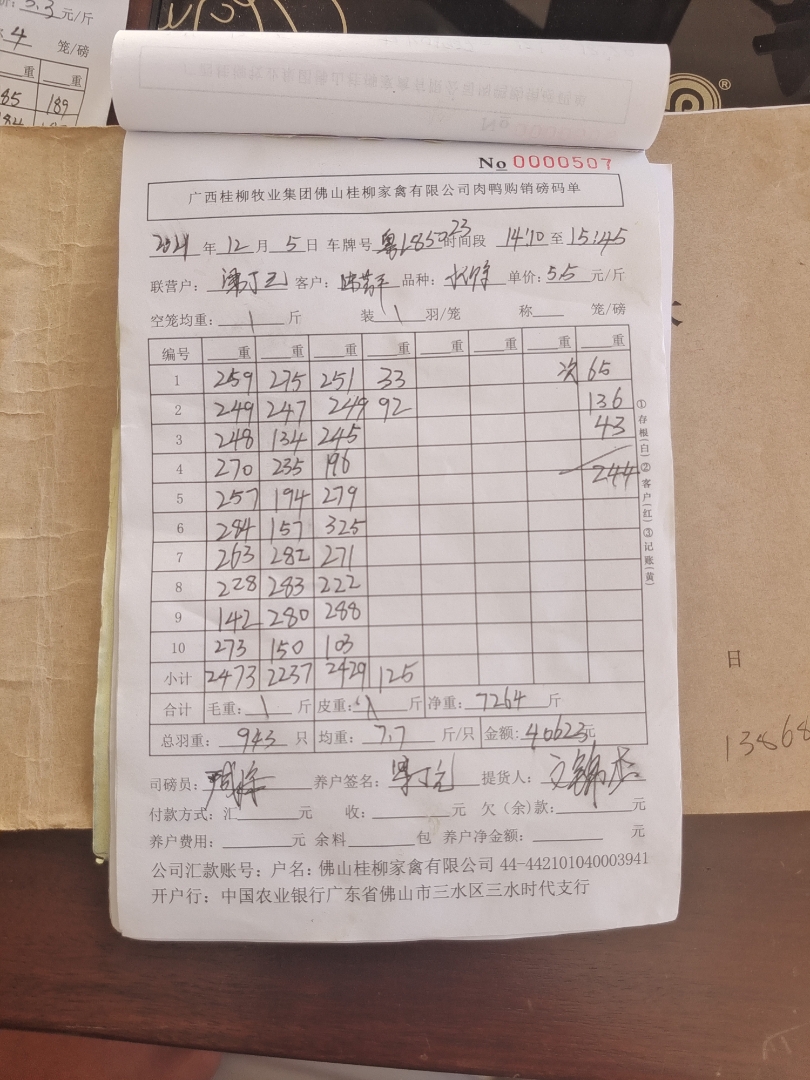 5.3 元/斤
4 笼/磅
重 重
85 189
®
No 0000507
广西桂柳牧业集团佛山桂柳家禽有限公司肉鸭购销磅码单
2021 年 12 月 5 日 车牌号 时间段 14:10 至 15:45
联营户: 客户: 品种: 单价: 5.5 元/斤
空笼均重: 斤 装 羽/笼 称 笼/磅
编号 重 重 重 重 重 重 重 重
1 259 275 251 33 次 65
2 249 247 249 92 136
3 248 134 245 43
4 270 235 196 244
5 257 194 279
6 284 157 325
7 263 282 271
8 228 283 222
9 142 280 288
10 273 150 103
小计 2473 2237 2429 125
合计 毛重: 斤 皮重: 斤 净重: 7264 斤
总羽重: 943 只 均重: 7.7 斤/只 金额: 40623元
司磅员: 养户签名: 提货人:
付款方式: 汇 元 收: 元 欠(余)款: 元
养户费用: 元 余料 包 养户净金额: 元
公司汇款账号: 户名: 佛山桂柳家禽有限公司 44-442101040003941
开户行: 中国农业银行广东省佛山市三水区三水时代支行
①存根(白)②客户(红)③记账(黄)
日
13868